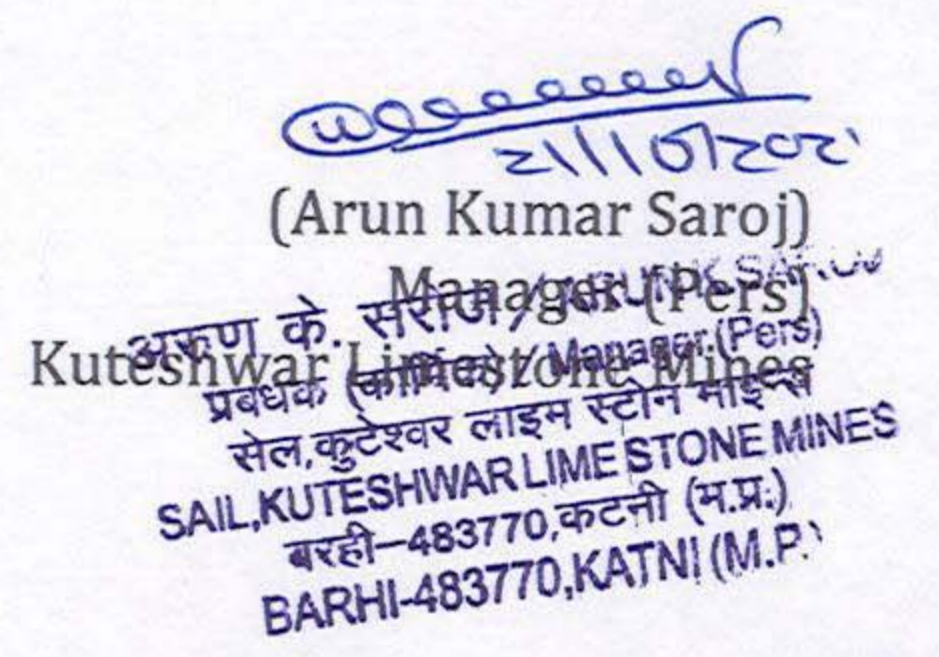 21/10/2021
(Arun Kumar Saroj)
Manager (Pers)
अरुण के. सरोज / ARUN K. SAROJ
Kuteshwar Limestone Mines
प्रबंधक (कार्मिक) / Manager (Pers)
सेल,कुटेश्वर लाइम स्टोन माइन्स
SAIL,KUTESHWAR LIME STONE MINES
बरही-483770,कटनी (म.प्र.)
BARHI-483770,KATNI (M.P.)